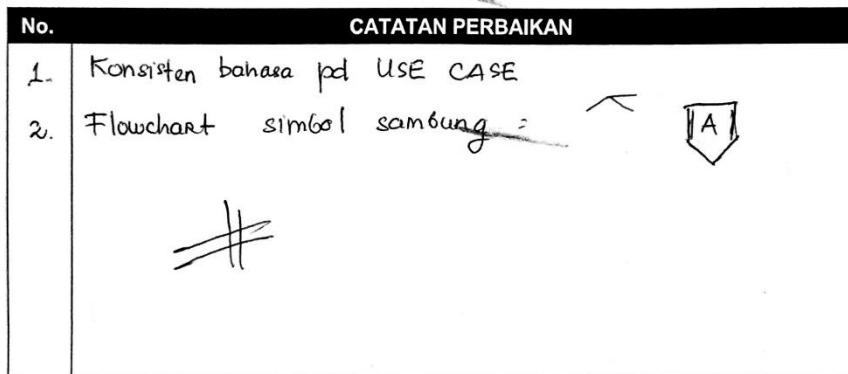 No. CATATAN PERBAIKAN
1. Konsisten bahasa pd USE CASE
2. Flowchart simbol sambung =
A